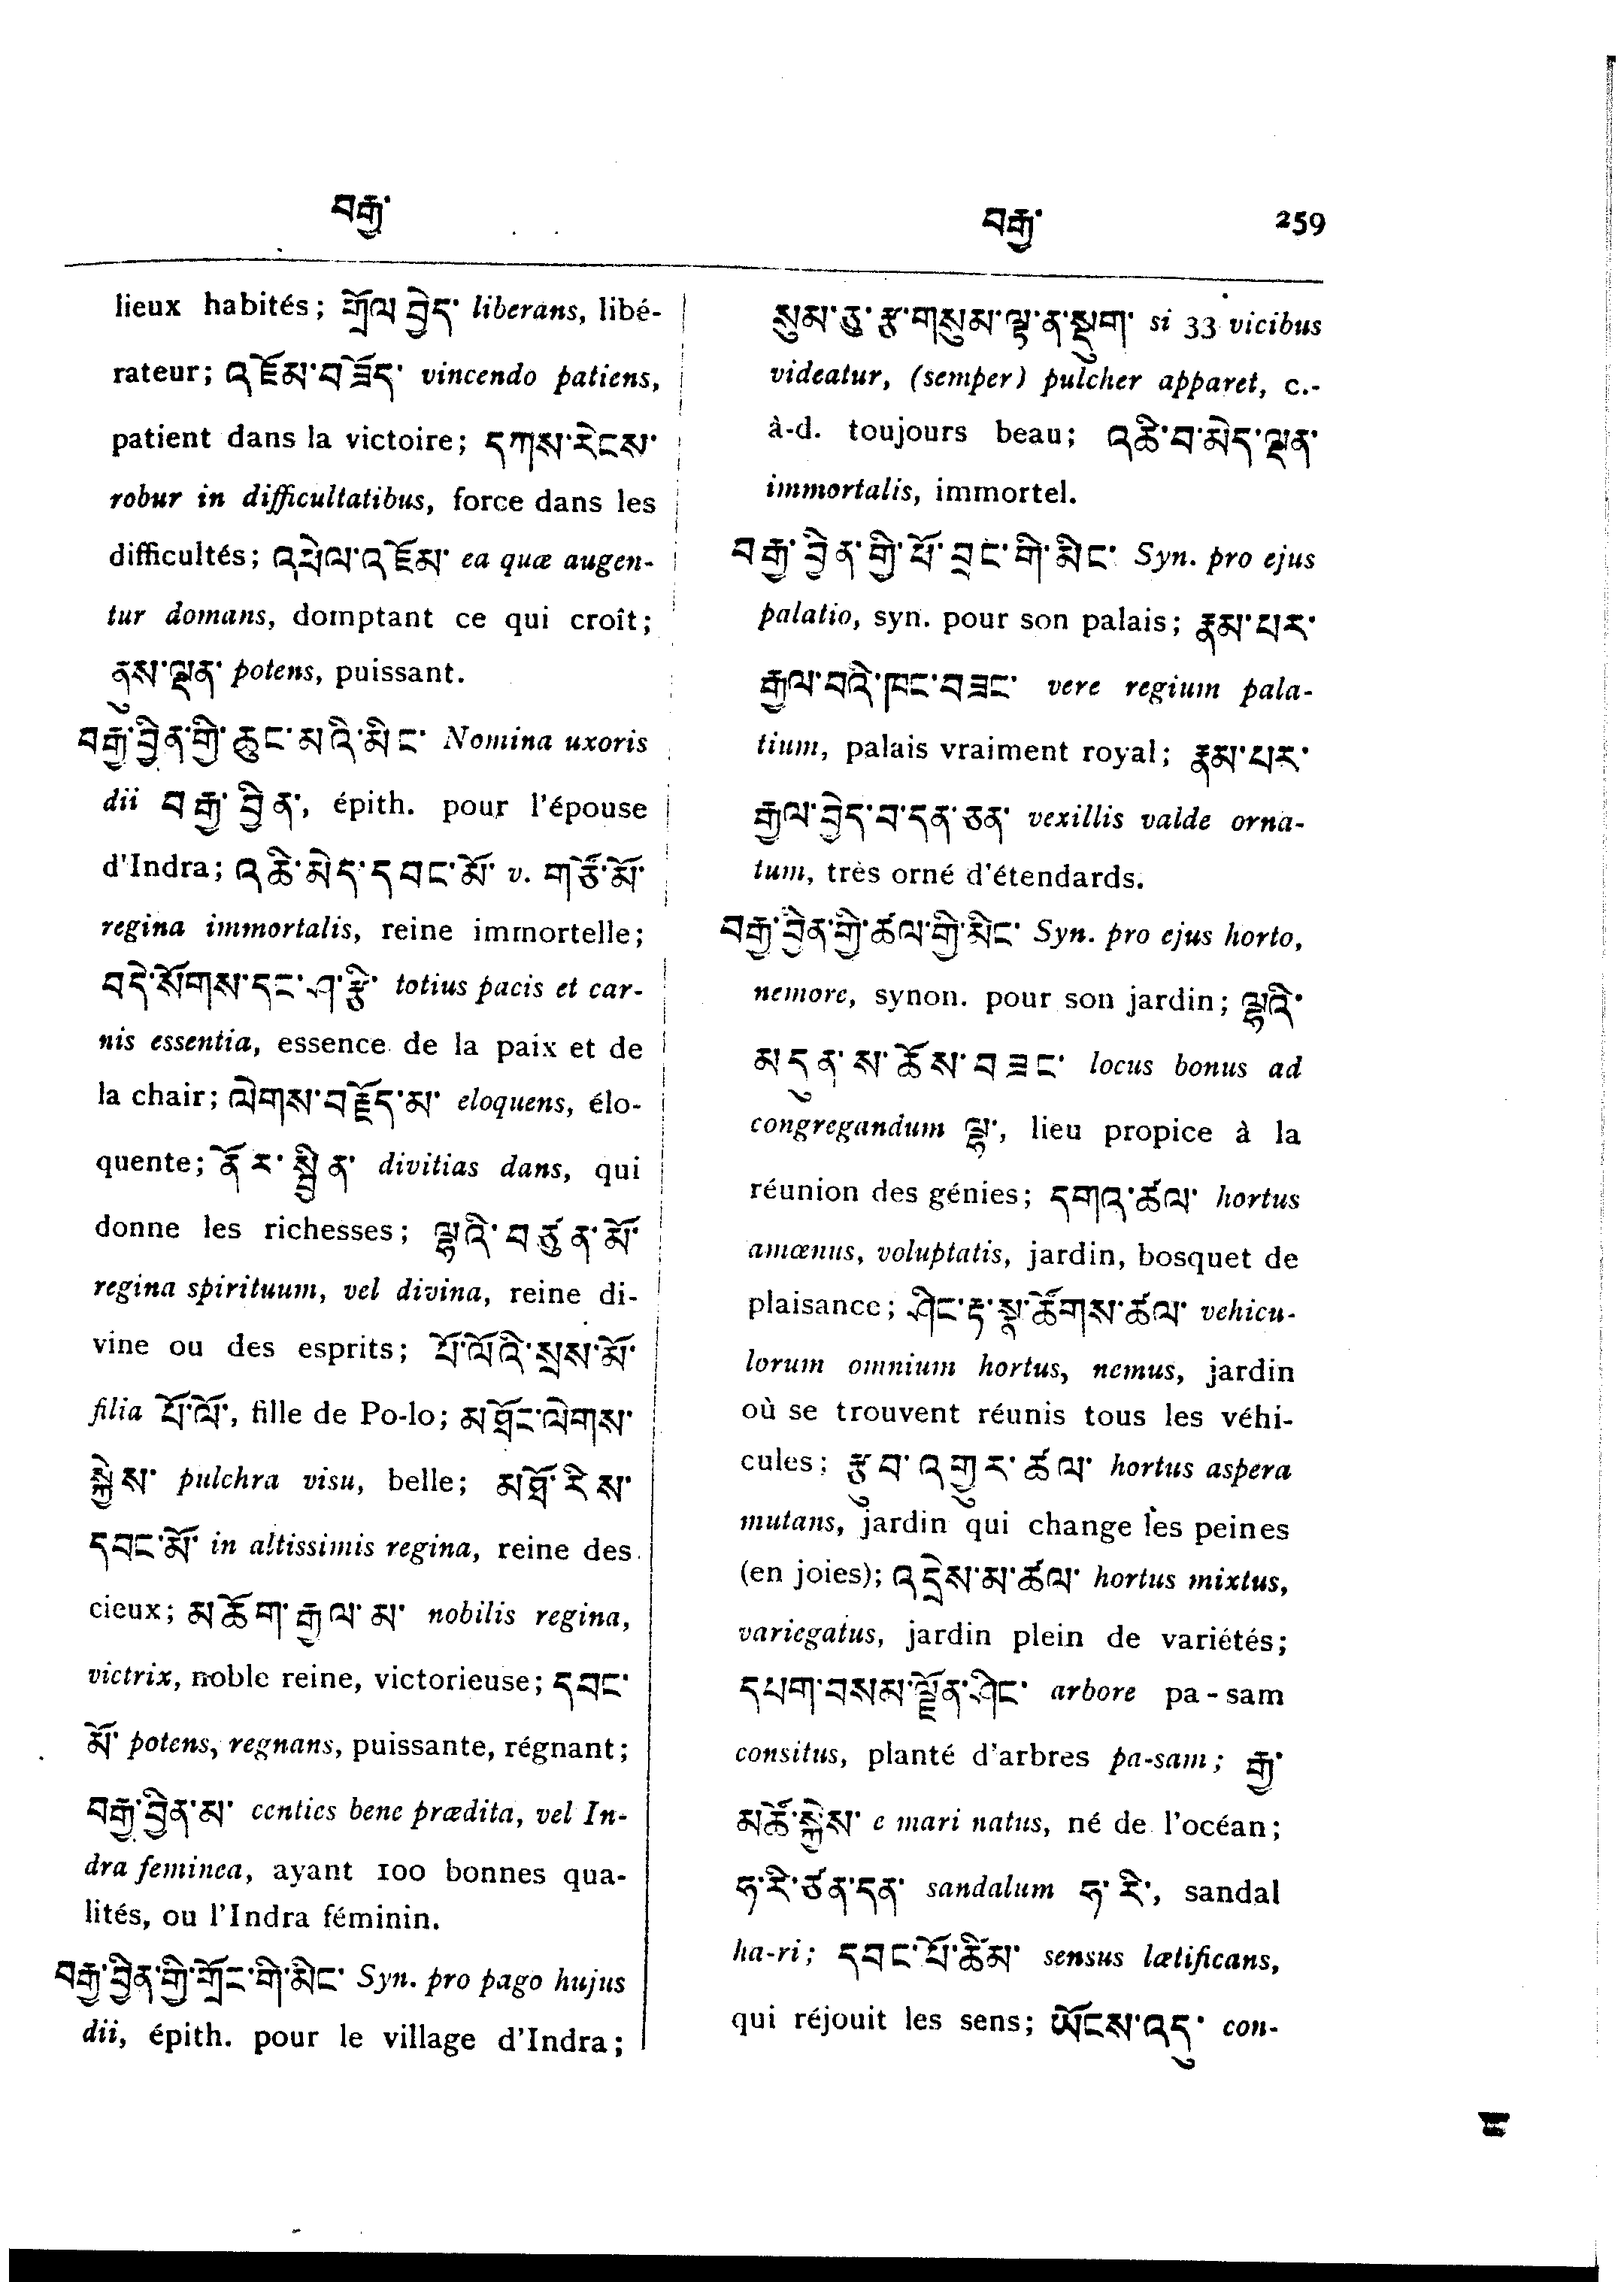 བརྒྱ་
བརྒྱ་ 259
lieux habités; གྲོལ་བྱེད་ liberans, libé-
rateur; འཇོམ་བཟོད་ vincendo patiens,
patient dans la victoire; དཀས་རེངས་
robur in difficultatibus, force dans les
difficultés; འཕེལ་འཇོམ་ ea quæ augen-
tur domans, domptant ce qui croît;
ནུས་ལྡན་ potens, puissant.
བརྒྱ་བྱིན་གྱི་ཆུང་མའི་མིང་ Nomina uxoris
dii བརྒྱ་བྱིན་, épith. pour l'épouse
d'Indra; འཆི་མེད་དབང་མོ་ v. གཙོ་མོ་
regina immortalis, reine immortelle;
བདེ་སོགས་དང་ཤ་རྩི་ totius pacis et car-
nis essentia, essence de la paix et de
la chair; ལེགས་བརྗོད་མ་ eloquens, élo-
quente; ནོར་སྦྱིན་ divitias dans, qui
donne les richesses; ལྷའི་བཙུན་མོ་
regina spirituum, vel divina, reine di-
vine ou des esprits; པོ་ལོའི་སྲས་མོ་
filia པོ་ལོ་, fille de Po-lo; མཐོང་ལེགས་
སྐྱེས་ pulchra visu, belle; མཐོ་རིས་
དབང་མོ་ in altissimis regina, reine des
cieux; མཆོག་རྒྱལ་མ་ nobilis regina,
victrix, noble reine, victorieuse; དབང་
མོ་ potens, regnans, puissante, régnant;
བརྒྱ་བྱིན་མ་ centies bene prædita, vel In-
dra feminea, ayant 100 bonnes qua-
lités, ou l'Indra féminin.
བརྒྱ་བྱིན་གྱི་གྲོང་གི་མིང་ Syn. pro pago hujus
dii, épith. pour le village d'Indra;
སུམ་ཅུ་རྩ་གསུམ་ལྟ་ན་སྡུག་ si 33 vicibus
videatur, (semper) pulcher apparet, c.-
à-d. toujours beau; འཆི་བ་མེད་ལྡན་
immortalis, immortel.
བརྒྱ་བྱིན་གྱི་ཕོ་བྲང་གི་མིང་ Syn. pro ejus
palatio, syn. pour son palais; རྣམ་པར་
རྒྱལ་བའི་ཁང་བཟང་ vere regium pala-
tium, palais vraiment royal; རྣམ་པར་
རྒྱལ་བྱེད་བ་དན་ཅན་ vexillis valde orna-
tum, très orné d'étendards.
བརྒྱ་བྱིན་གྱི་ཚལ་གྱི་མིང་ Syn. pro ejus horto,
nemore, synon. pour son jardin; ལྷའི་
མདུན་ས་ཆོས་བཟང་ locus bonus ad
congregandum ལྷ་, lieu propice à la
réunion des génies; དགའ་ཚལ་ hortus
amœnus, voluptatis, jardin, bosquet de
plaisance; ཤིང་རྟ་སྣ་ཚོགས་ཚལ་ vehicu-
lorum omnium hortus, nemus, jardin
où se trouvent réunis tous les véhi-
cules; རྩུབ་འགྱུར་ཚལ་ hortus aspera
mutans, jardin qui change les peines
(en joies); འདྲེས་མ་ཚལ་ hortus mixtus,
variegatus, jardin plein de variétés;
དཔག་བསམ་ལྗོན་ཤིང་ arbore pa-sam
consitus, planté d'arbres pa-sam; རྒྱ་
མཚོ་སྐྱེས་ e mari natus, né de l'océan;
ཧ་རི་ཙན་དན་ sandalum ཧ་རི་, sandal
ha-ri; དབང་པོ་ཚིམ་ sensus lætificans,
qui réjouit les sens; ཡོངས་འདུ་ con-